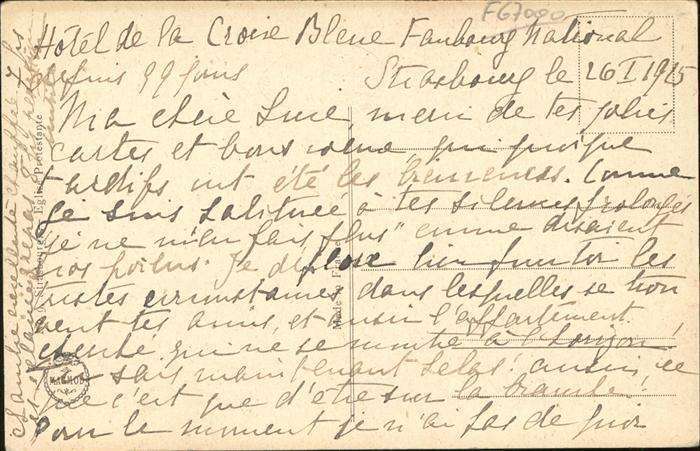 FG7090
Hôtel de la Croix Bleue Faubourg National
depuis 99 jours
Strasbourg le 26 I 1925
Ma chère Lucie merci de tes jolies
cartes et bons voeux qui quoique
tardifs ont été les bienvenus. Comme
je suis habituée à tes silences prolongés
"je ne m'en fais plus" comme disaient
nos poilus. Je déplore bien fun toi les
tristes circonstances dans lesquelles se trou
vent tes amis, et aussi l'appartement
cherché qui ne se montre à l'horizon!
Je sais maintenant hélas! aussi ce
que c'est que d'être sur la branche!
Pour le moment je n'ai pas de
Chambre chauffée
Strasbourg
Eglise Protestante